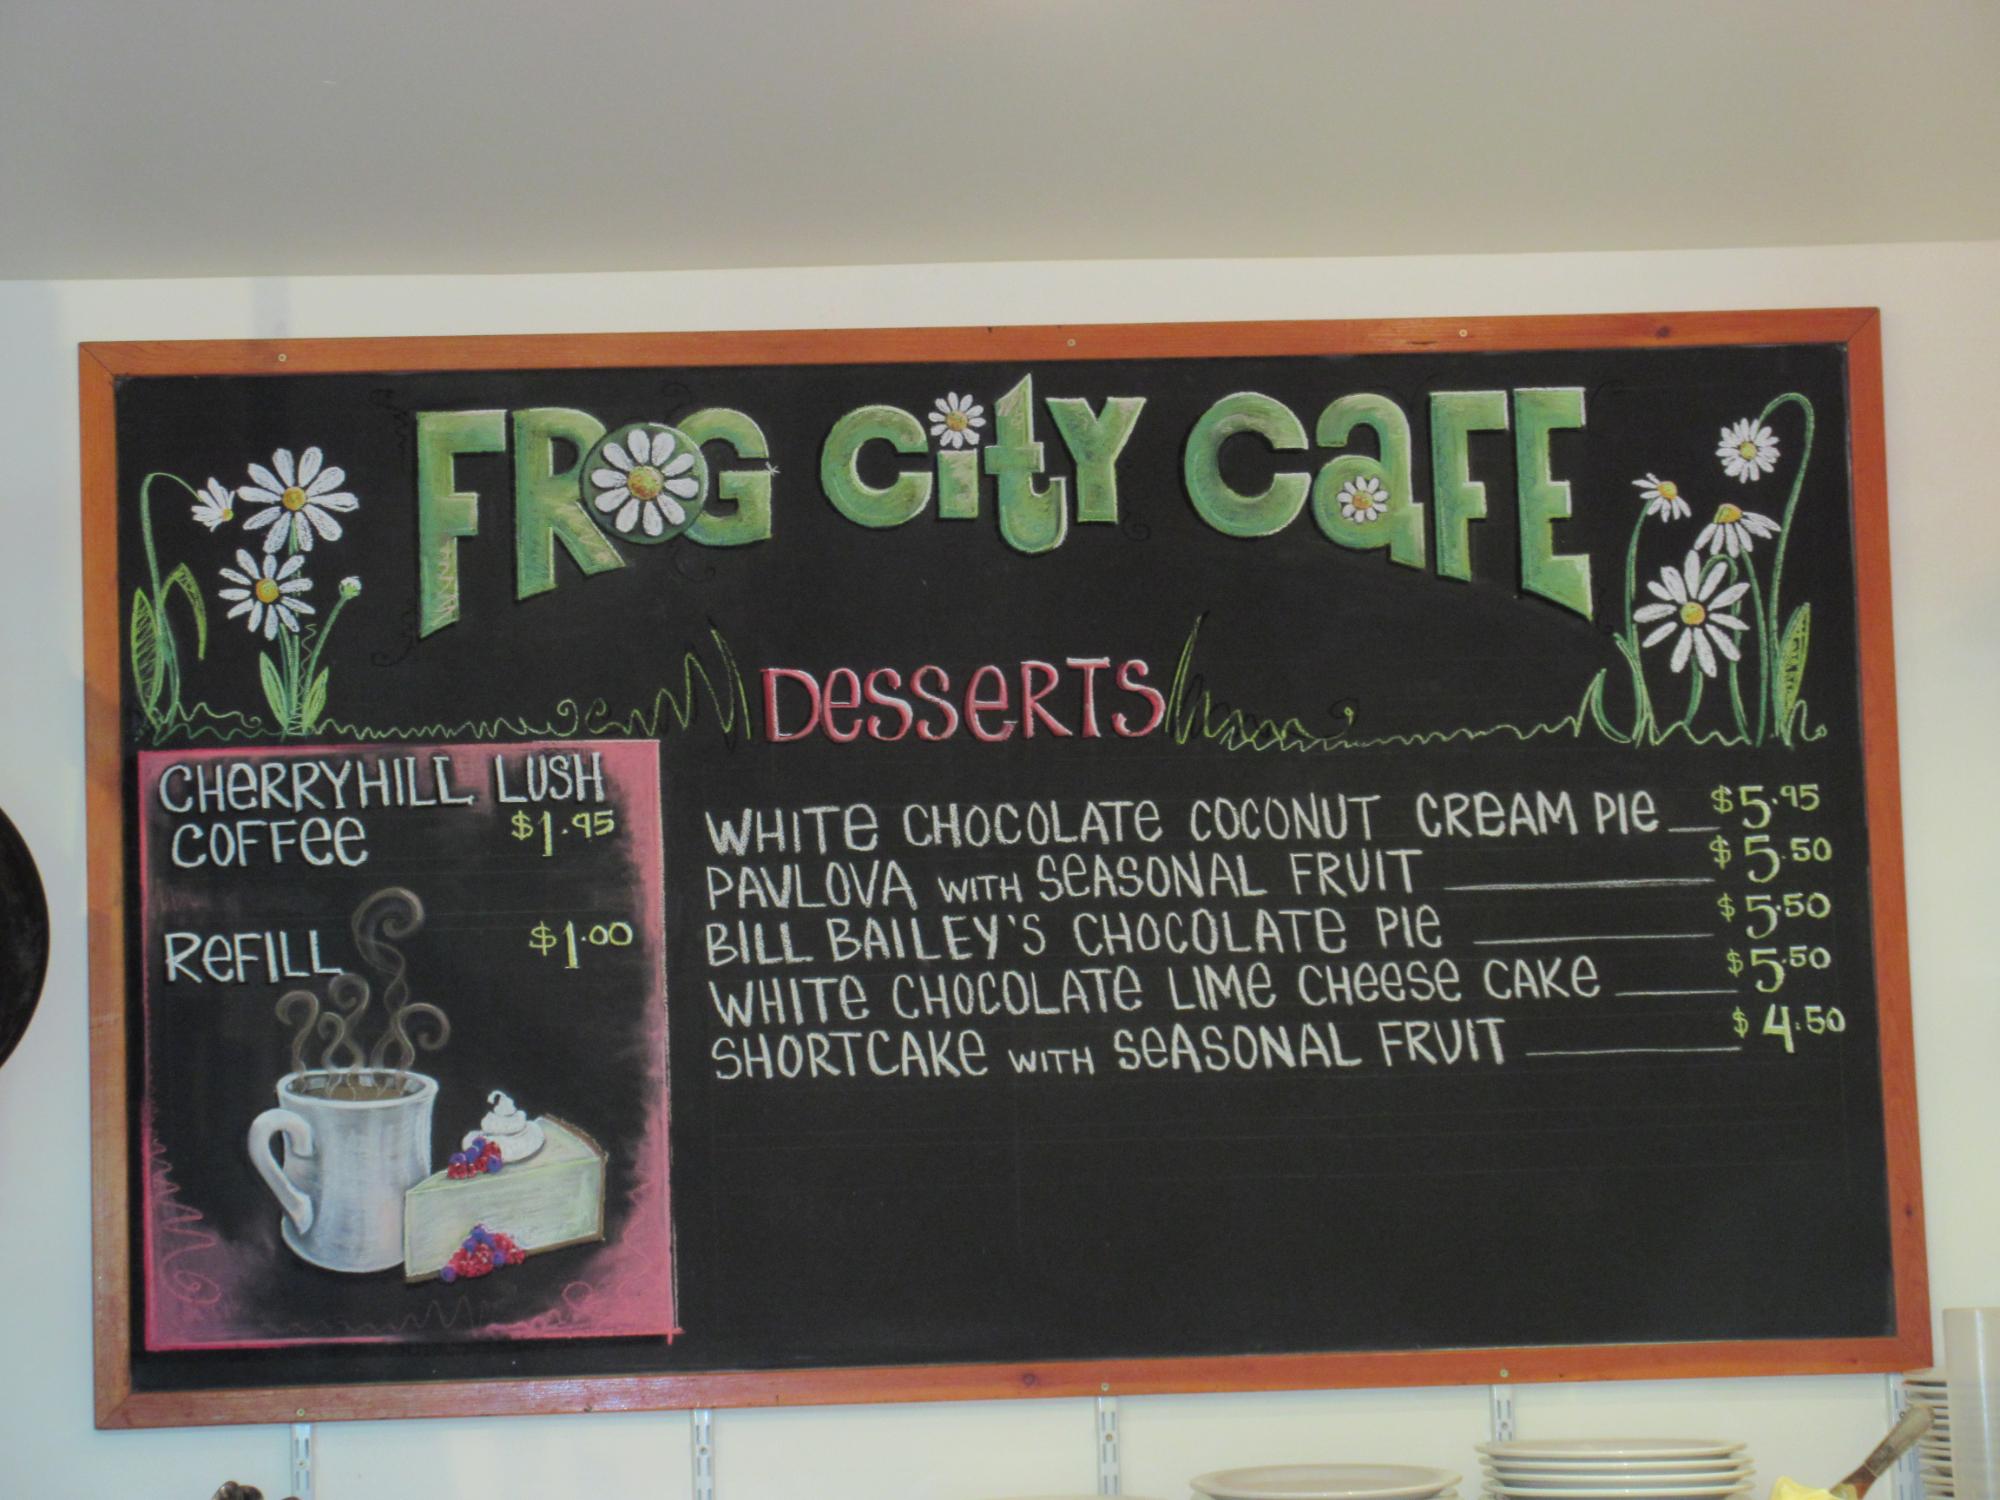 FROG CitY CaFE
DesseRTS
CHeRRYHILL LUSH
COFFee $1.95
ReFILL $1.00
WHITe CHOCOLATe COCONUT CReAM PIe $5.95
PAVLOVA WITH SeASONAL FRUIT $5.50
BILL BAILEY'S CHOCOLATe PIe $5.50
WHITe CHOCOLATe LIMe CHeese CAKe $5.50
SHORTCAKe WITH SeASONAL FRUIT $4.50